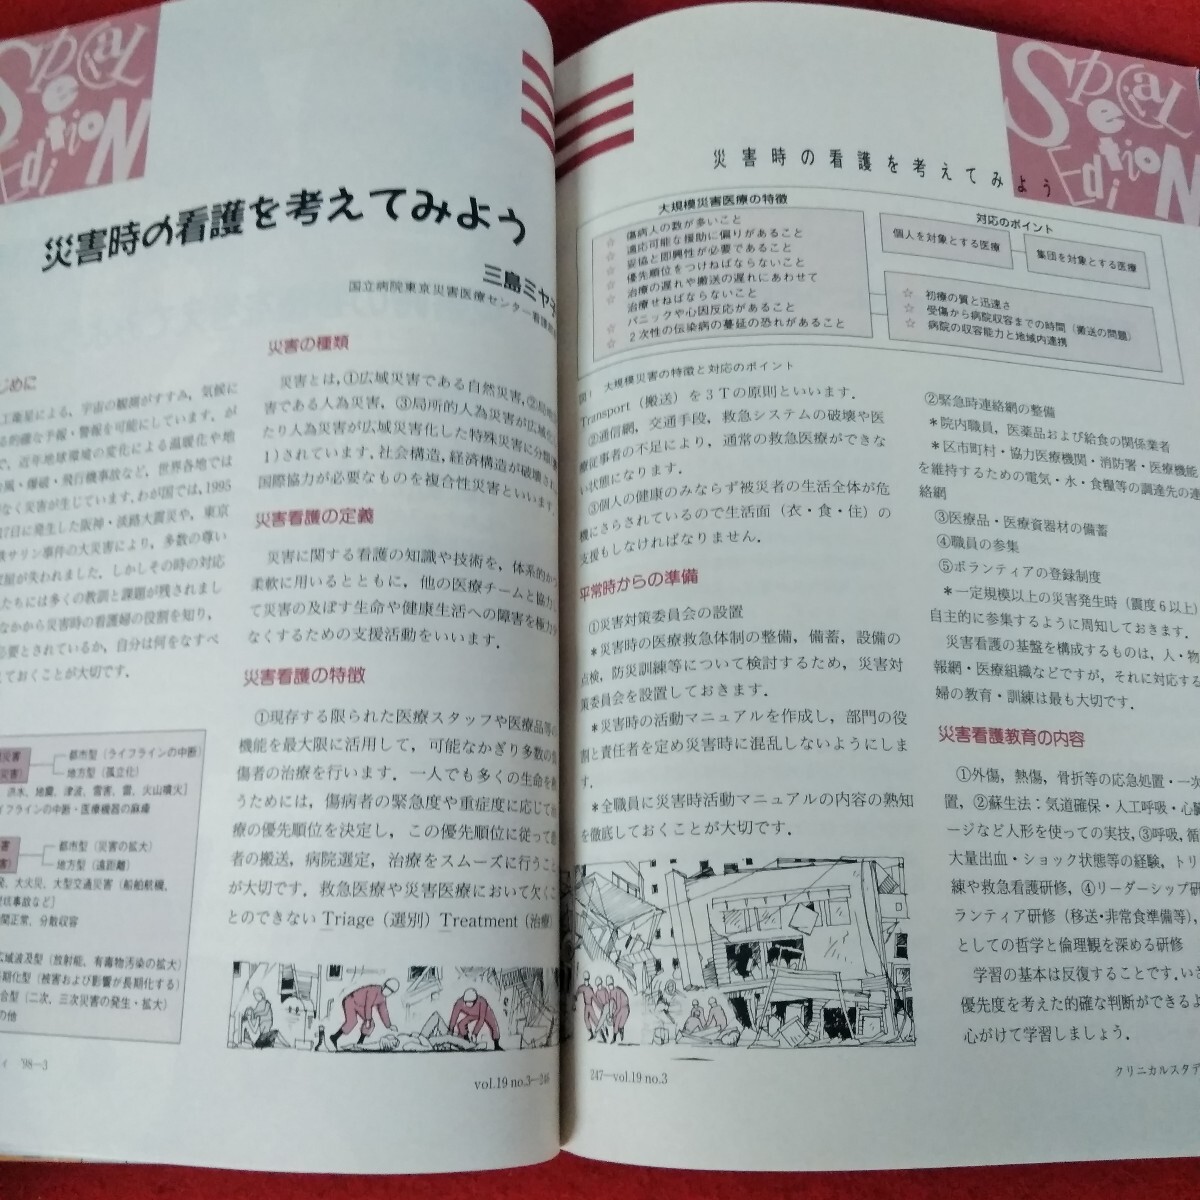 Special Edition
災害時の看護を考えてみよう
三島ミヤ子
国立病院東京災害医療センター看護部
じめに
工衛星による，宇宙の観測がすすみ，気候に
る的確な予報・警報を可能にしています．が
で，近年地球環境の変化による温暖化や地
風・爆破・飛行機事故など，世界各地では
なく災害が生じています．わが国では，1995
17日に発生した阪神・淡路大震災や，東京
鉄サリン事件の大災害により，多数の尊い
家屋が失われました．しかしその時の対応
たちには多くの教訓と課題が残されまし
なかから災害時の看護婦の役割を知り，
必要とされているか，自分は何をなすべ
ておくことが大切です．
災害
都市型（ライフラインの中断）
災害）
地方型（孤立化）
洪水、地震、津波、雪害、雷、火山噴火］
イフラインの中断・医療機器の麻痺
害
都市型（災害の拡大）
害）
地方型（遠距離）
発、大火災、大型交通災害（船舶航機、
送事故など］
関正常、分散収容
広域波及型（放射能、有毒物汚染の拡大）
長期化型（被害および影響が長期化する）
合型（二次、三次災害の発生・拡大）
の他
災害の種類
災害とは，①広域災害である自然災害，②局地
害である人為災害，③局所的人為災害が広域化
たり人為災害が広域災害化した特殊災害に分類
1）されています．社会構造，経済構造が破壊され
国際協力が必要なものを複合性災害といいます．
災害看護の定義
災害に関する看護の知識や技術を，体系的かつ
柔軟に用いるとともに，他の医療チームと協力し
て災害の及ぼす生命や健康生活への障害を極力少
なくするための支援活動をいいます．
災害看護の特徴
①現存する限られた医療スタッフや医療品等の
機能を最大限に活用して，可能なかぎり多数の傷
傷者の治療を行います．一人でも多くの生命を救
うためには，傷病者の緊急度や重症度に応じて治
療の優先順位を決定し，この優先順位に従って患
者の搬送，病院選定，治療をスムーズに行うこと
が大切です．救急医療や災害医療において欠くこ
とのできない Triage（選別）Treatment（治療）
'98—3
vol.19 no.3—246
Special Edition
災害時の看護を考えてみよう
大規模災害医療の特徴
☆ 傷病人の数が多いこと
☆ 適応可能な援助に偏りがあること
☆ 妥協と即興性が必要であること
☆ 優先順位をつけねばならないこと
☆ 治療の遅れや搬送の遅れにあわせて
治療せねばならないこと
☆ パニックや心因反応があること
☆ 2次性の伝染病の蔓延の恐れがあること
対応のポイント
個人を対象とする医療
集団を対象とする医療
☆ 初療の質と迅速さ
☆ 受傷から病院収容までの時間（搬送の問題）
☆ 病院の収容能力と地域内連携
大規模災害の特徴と対応のポイント
Transport（搬送）を3Tの原則といいます．
②通信網，交通手段，救急システムの破壊や医
療従事者の不足により，通常の救急医療ができな
い状態になります．
③個人の健康のみならず被災者の生活全体が危
機にさらされているので生活面（衣・食・住）の
支援もしなければなりません．
平常時からの準備
①災害対策委員会の設置
＊災害時の医療救急体制の整備，備蓄，設備の
点検，防災訓練等について検討するため，災害対
策委員会を設置しておきます．
＊災害時の活動マニュアルを作成し，部門の役
割と責任者を定め災害時に混乱しないようにしま
す．
＊全職員に災害時活動マニュアルの内容の熟知
を徹底しておくことが大切です．
②緊急時連絡網の整備
＊院内職員，医薬品および給食の関係業者
＊区市町村・協力医療機関・消防署・医療機能
を維持するための電気・水・食糧等の調達先の連
絡網
③医療品・医療資器材の備蓄
④職員の参集
⑤ボランティアの登録制度
＊一定規模以上の災害発生時（震度6以上）
自主的に参集するように周知しておきます．
災害看護の基盤を構成するものは，人・物
報網・医療組織などですが，それに対応する
婦の教育・訓練は最も大切です．
災害看護教育の内容
①外傷，熱傷，骨折等の応急処置・一次
置，②蘇生法：気道確保・人工呼吸・心臓
ージなど人形を使っての実技，③呼吸，循
大量出血・ショック状態等の経験，トリ
練や救急看護研修，④リーダーシップ研
ランティア研修（移送・非常食準備等），
としての哲学と倫理観を深める研修
学習の基本は反復することです．いざ
優先度を考えた的確な判断ができるよ
心がけて学習しましょう．
247—vol.19 no.3
クリニカルスタデ